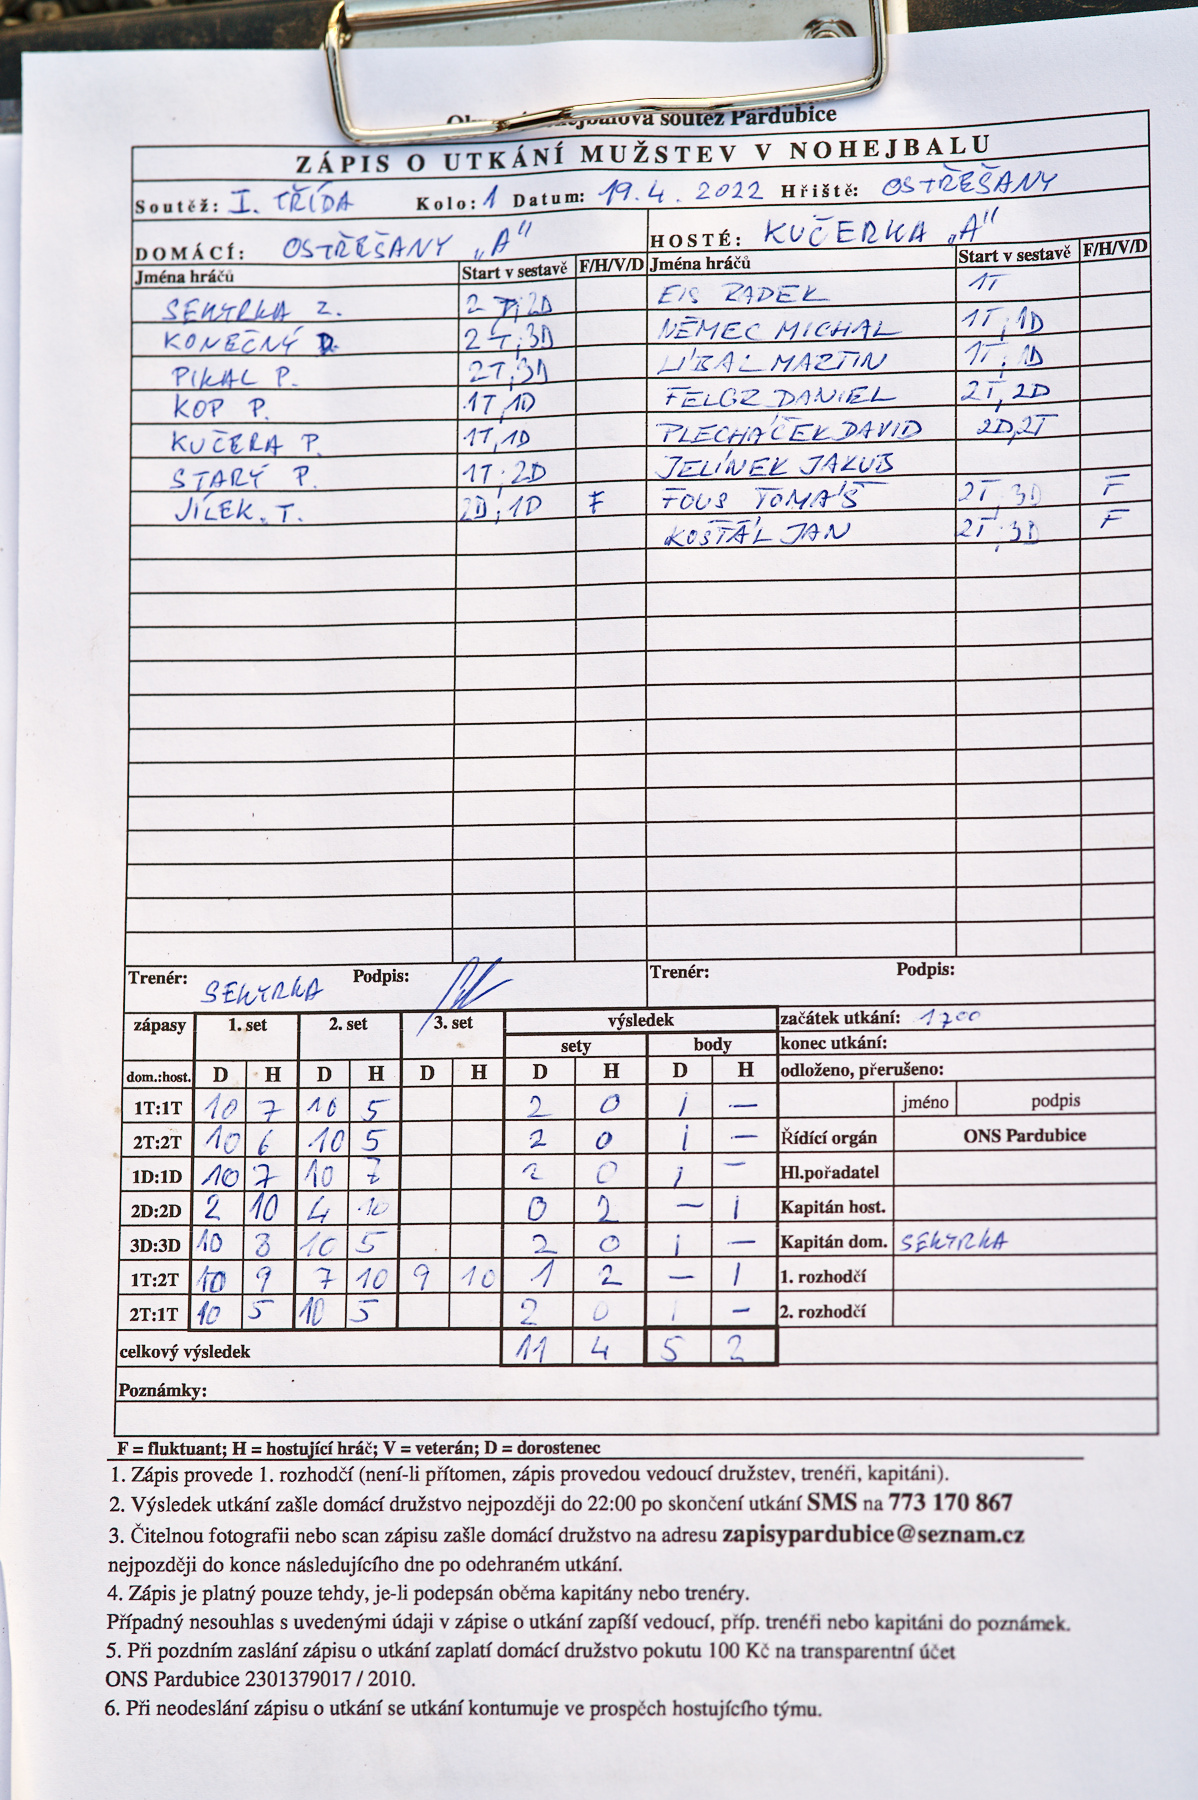 soutěž Pardubice
ZÁPIS O UTKÁNÍ MUŽSTEV V NOHEJBALU
Soutěž: I. TŘÍDA Kolo: 1 Datum: 19.4.2022 Hřiště: OSTŘEŠANY
DOMÁCÍ: OSTŘEŠANY „A" HOSTÉ: KUČERKA „A"
Jména hráčů Start v sestavě F/H/V/D Jména hráčů Start v sestavě F/H/V/D
SEKYRKA Z. 2T;2D EIS RADEK 1T
KONEČNÝ D. 2T;3D NĚMEC MICHAL 1T;1D
PIKAL P. 2T;3D LÍBAL MARTIN 1T;1D
KOP P. 1T,1D FELGR DANIEL 2T,2D
KUČERA P. 1T,1D PLECHÁČEK DAVID 2D,2T
STARÝ P. 1T;2D JELÍNEK JAKUB
JÍLEK T. 2D;1D F FOUS TOMÁŠ 2T;3D F
KOŠŤÁL JAN 2T;3D F
Trenér: SEKYRKA Podpis: Trenér: Podpis:
zápasy 1. set 2. set 3. set výsledek začátek utkání: 1700
sety body konec utkání:
dom.:host. D H D H D H D H D H odloženo, přerušeno:
1T:1T 10 7 10 5 2 0 1 — jméno podpis
2T:2T 10 6 10 5 2 0 1 — Řídící orgán ONS Pardubice
1D:1D 10 7 10 7 2 0 1 — Hl.pořadatel
2D:2D 2 10 4 10 0 2 — 1 Kapitán host.
3D:3D 10 3 10 5 2 0 1 — Kapitán dom. SEKYRKA
1T:2T 10 9 7 10 9 10 1 2 — 1 1. rozhodčí
2T:1T 10 5 10 5 2 0 1 — 2. rozhodčí
celkový výsledek 11 4 5 2
Poznámky:
F = fluktuant; H = hostující hráč; V = veterán; D = dorostenec
1. Zápis provede 1. rozhodčí (není-li přítomen, zápis provedou vedoucí družstev, trenéři, kapitáni).
2. Výsledek utkání zašle domácí družstvo nejpozději do 22:00 po skončení utkání SMS na 773 170 867
3. Čitelnou fotografii nebo scan zápisu zašle domácí družstvo na adresu zapisypardubice@seznam.cz
nejpozději do konce následujícího dne po odehraném utkání.
4. Zápis je platný pouze tehdy, je-li podepsán oběma kapitány nebo trenéry.
Případný nesouhlas s uvedenými údaji v zápise o utkání zapíší vedoucí, příp. trenéři nebo kapitáni do poznámek.
5. Při pozdním zaslání zápisu o utkání zaplatí domácí družstvo pokutu 100 Kč na transparentní účet
ONS Pardubice 2301379017 / 2010.
6. Při neodeslání zápisu o utkání se utkání kontumuje ve prospěch hostujícího týmu.